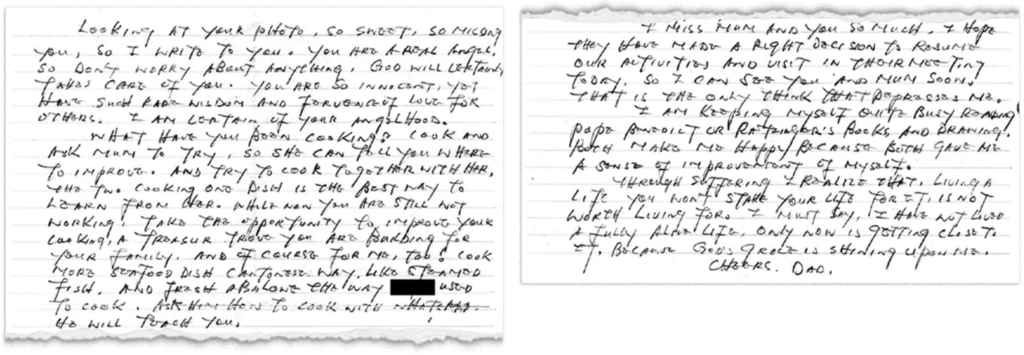 Looking at your photo, so sweet, so missing
you, so I write to you. You are a real angel.
So don't worry about anything. God will certainly
takes care of you. You are so innocent, yet
have such rare wisdom and of love for
others. I am certain of your angelhood.
What have you been cooking? Cook and
ask Mum to try, so she can tell you where
to improve. And try to cook together with her,
the two cooking one dish is the best way to
learn from her. While now you are still not
working, take the opportunity to improve your
cooking, a treasur trove you are building for
your family. And of course for me, too! Cook
more seafood dish Cantonese way, like steamed
fish. And fresh abalone the way used
to cook. Ask him how to cook with
He will teach you.
I miss Mum and you so much. I hope
they have made a right decision to resume
our activities and visit in their meeting
today. So I can see you and Mum soon!
That is the only think that depresses me.
I am keeping myself quite busy reading
Pope Benedict or Ratzinger's books and drawing.
Both make me happy because both gave me
a sense of improvement of myself.
Through suffering I realize that, living a
life you won't stake your life for it, is not
worth living for. I must say, I have not lived
a fully alive life. Only now is getting close to
it. Because God's grace is shining upon me.
Cheers. Dad.